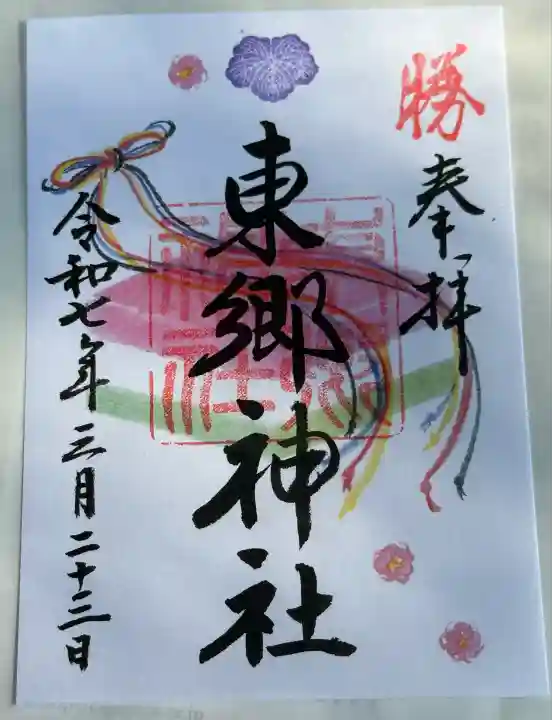 勝
奉拝
東郷神社
令和七年三月二十三日